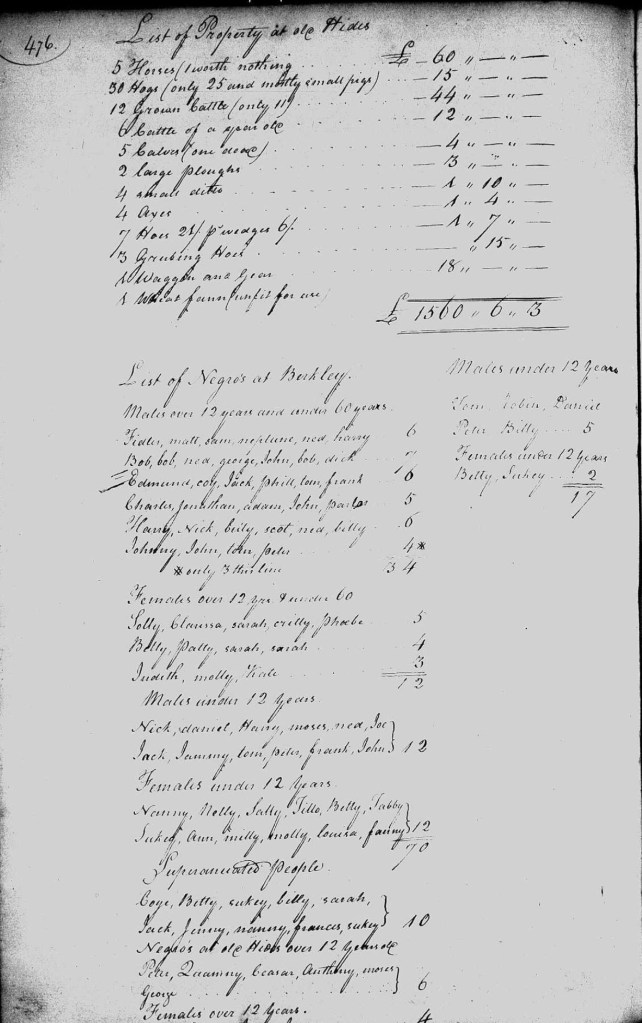 476.
List of Property at old Hides
5 Horses (1 worth nothing . . . £ 60 „ — „ —
30 Hogs (only 25 and mostly small pigs) . . 15 „ — „ —
12 Grown Cattle (only 11) . . . 44 „ — „ —
6 Cattle of a year old . . . 12 „ — „ —
5 Calves (one dead) . . . 4 „ — „ —
2 large ploughs . . . 3 „ — „ —
4 small ditto . . . 1 „ 10 „ —
4 Axes . . . 1 „ 4 „ —
7 Hoes 21/. pr wedges 6/. . . . 1 „ 7 „ —
3 Grubing Hoes . . . „ 15 „ —
1 Waggon and Gear . . . 18 „ — „ —
1 Wheat fann (unfit for use)
£ 1560 „ 6 „ 3
List of Negro's at Berkley.
Males over 12 years and under 60 years.
Fidler, matt, sam, neptune, ned, harry 6
Bob, bob, ned, george, John, bob, dick 7
Edmund, coy, Jack, phill, tom, frank 6
Charles, Jonathan, adam, John, 5
Harry, Nick, billy, scot, ned, billy 6
Johnny, John, tom, peter 4*
* only 3 this line 34
Females over 12 yrs & under 60
Solly, Clarissa, sarah, crilly, Phoebe 5
Betty, Patty, sarah, sarah 4
Judith, molly, Kate 3
12
Males under 12 Years.
Nick, daniel, Harry, moses, ned, Joe
Jack, Jammy, tom, peter, frank, John 12
Females under 12 Years.
Nanny, Nelly, Sally, Tillo, Betty, Tabby
Sukey, Ann, milly, molly, louisa, fanny 12
70
Superanuated People.
Coye, Betty, sukey, billy, sarah,
Jack, Jenny, nanny, frances, sukey 10
Negro's at old Hides over 12 Years old
Peter, Quammy, Ceasar, Anthony, moses
George . . . 6
Females over 12 Years.
4
Males under 12 Years
Tom, Robin, Daniel
Peter Billy . . . 5
Females under 12 Years
Betty, Sukey . . . 2
17